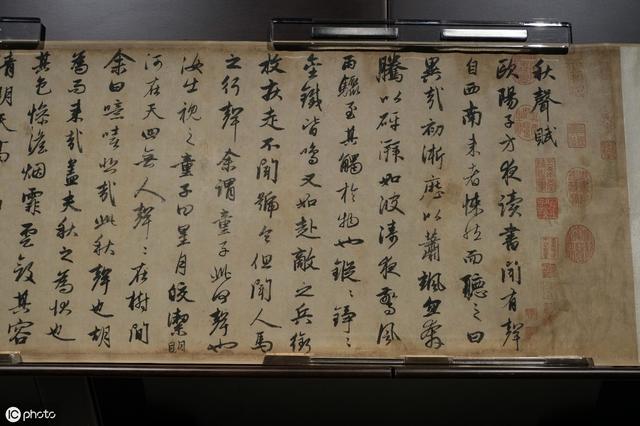 秋聲賦
歐陽子方夜读書聞有聲
自西南来者悚然而聽之曰
異哉初淅瀝以蕭颯忽奔
騰以砰湃如波濤夜驚風
雨驟至其觸於物也鏦〻錚〻
金鐵皆鳴又如赴敵之兵銜
枚疾走不聞號令但聞人馬
之行聲余謂童子此何聲也
汝出視之童子曰星月皎潔明
河在天四無人聲〻在樹間
余曰噫嘻悲哉此秋聲也胡
為而来哉盖夫秋之為狀也
其色慘澹烟霏雲斂其容
清明天高
iC photo